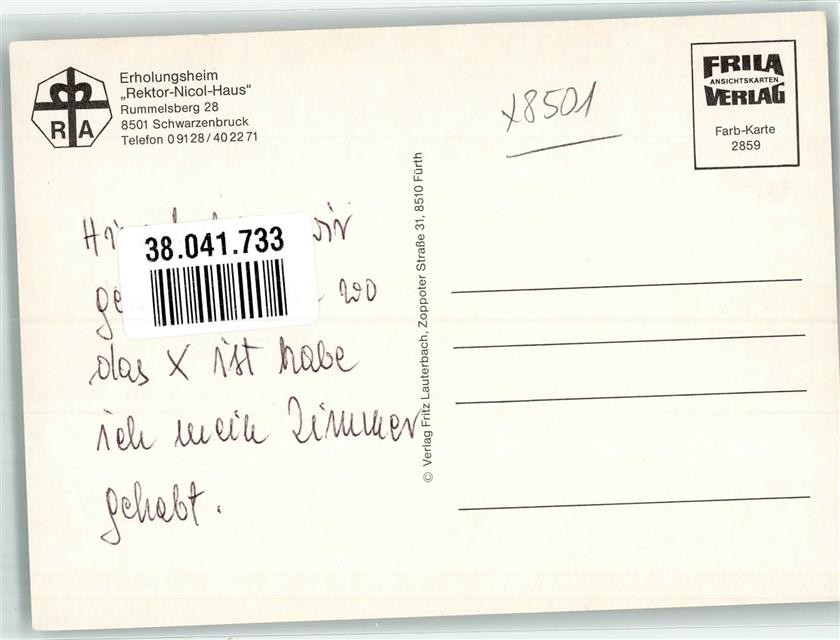 R A
Erholungsheim
„Rektor-Nicol-Haus"
Rummelsberg 28
8501 Schwarzenbruck
Telefon 0 91 28 / 40 22 71
x8501
FRILA
ANSICHTSKARTEN
VERLAG
Farb-Karte
2859
38.041.733
wir
wo
das X ist habe
ich mein Zimmer
gehabt.
© Verlag Fritz Lauterbach, Zoppoter Straße 31, 8510 Fürth